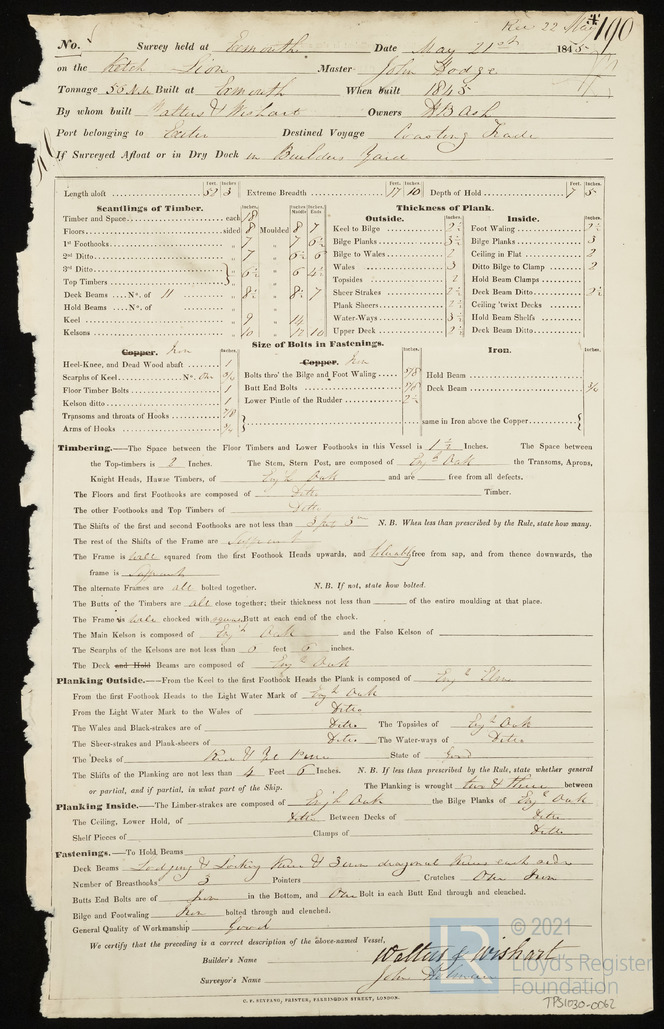 Rec 22 May 190
No. Survey held at Exmouth Date May 21st 1845
on the Ketch Lion Master John Hodge
Tonnage 55 Built at Exmouth When built 1845
By whom built Walters & Wishart Owners
Port belonging to Exeter Destined Voyage Coasting Trade
If Surveyed Afloat or in Dry Dock in Builders Yard
Feet. Inches. Feet. Inches. Feet. Inches.
Length aloft 5 Extreme Breadth 17 10 Depth of Hold 7 5
Scantlings of Timber. Thickness of Plank.
Timber and Space each 18 Outside. Inside.
Floors sided 8 Moulded 8 7 Keel to Bilge 2½ Foot Waling 2½
1st Foothooks „ 7 „ 7 6½ Bilge Planks 3½ Bilge Planks 3
2nd Ditto „ 7 „ 6½ 6 Bilge to Wales 2 Ceiling in Flat 2
3rd Ditto } „ 6½ „ 6 4½ Wales 3 Ditto Bilge to Clamp 2
Top Timbers Topsides 2 Hold Beam Clamps
Deck Beams No. of 11 „ 8½ „ 8½ 7 Sheer Strakes 2½ Deck Beam Ditto 2½
Hold Beams No. of Plank Sheers 2 Ceiling 'twixt Decks
Keel „ 9 Water-Ways 3½ Hold Beam Shelfs
Kelsons „ 10 „ 12 10 Upper Deck 2½ Deck Beam Ditto
Size of Bolts in Fastenings.
Copper. Iron Copper. Iron Iron.
Heel-Knee, and Dead Wood abaft 1 Bolts thro' the Bilge and Foot Waling 5/8 Hold Beam
Scarphs of Keel No. One 3/4 Butt End Bolts Deck Beam 3/4
Floor Timber Bolts 1 Lower Pintle of the Rudder 2¼
Kelson ditto 1
Transoms and throats of Hooks 7/8 same in Iron above the Copper
Arms of Hooks 3/4
Timbering.—The Space between the Floor Timbers and Lower Foothooks in this Vessel is 1½ Inches. The Space between
the Top-timbers is 2 Inches. The Stem, Stern Post, are composed of Engh Oak the Transoms, Aprons,
Knight Heads, Hawse Timbers, of Engh Oak and are free from all defects.
The Floors and first Foothooks are composed of Ditto Timber.
The other Foothooks and Top Timbers of Ditto
The Shifts of the first and second Foothooks are not less than 3 feet 5 N.B. When less than prescribed by the Rule, state how many.
The rest of the Shifts of the Frame are
The Frame is well squared from the first Foothook Heads upwards, and tolerably free from sap, and from thence downwards, the
frame is
The alternate Frames are all bolted together. N.B. If not, state how bolted.
The Butts of the Timbers are all close together; their thickness not less than of the entire moulding at that place.
The Frame is well chocked with square Butt at each end of the chock.
The Main Kelson is composed of Engh Oak and the False Kelson of
The Scarphs of the Kelsons are not less than 0 feet 0 inches.
The Deck and Hold Beams are composed of Engh Oak
Planking Outside.—From the Keel to the first Foothook Heads the Plank is composed of Engh Elm
From the first Foothook Heads to the Light Water Mark of Engh Oak
From the Light Water Mark to the Wales of Ditto
The Wales and Black-strakes are of Ditto The Topsides of Engh Oak
The Sheer-strakes and Plank-sheers of Ditto The Water-ways of Ditto
The Decks of Red & Yel Pine State of Good
The Shifts of the Planking are not less than 4 Feet 6 Inches. N.B. If less than prescribed by the Rule, state whether general
or partial, and if partial, in what part of the Ship. The Planking is wrought two & three between
Planking Inside.—The Limber-strakes are composed of Engh Oak the Bilge Planks of Engh Oak
The Ceiling, Lower Hold, of Ditto Between Decks of Ditto
Shelf Pieces of Clamps of Ditto
Fastenings.—To Hold Beams
Deck Beams Lodging & Locking Knees & 3 iron diagonal Knees each side
Number of Breasthooks 3 Pointers Crutches One Iron
Butts End Bolts are of Iron in the Bottom, and One Bolt is each Butt End through and clenched.
Bilge and Footwaling Iron bolted through and clenched.
General Quality of Workmanship Good
We certify that the preceding is a correct description of the above-named Vessel,
Builder's Name Walters & Wishart
Surveyor's Name John
C. F. SEYFANG, PRINTER, FARRINGDON STREET, LONDON.
LR © 2021
Lloyd's Register
Foundation
TPS1030-0062